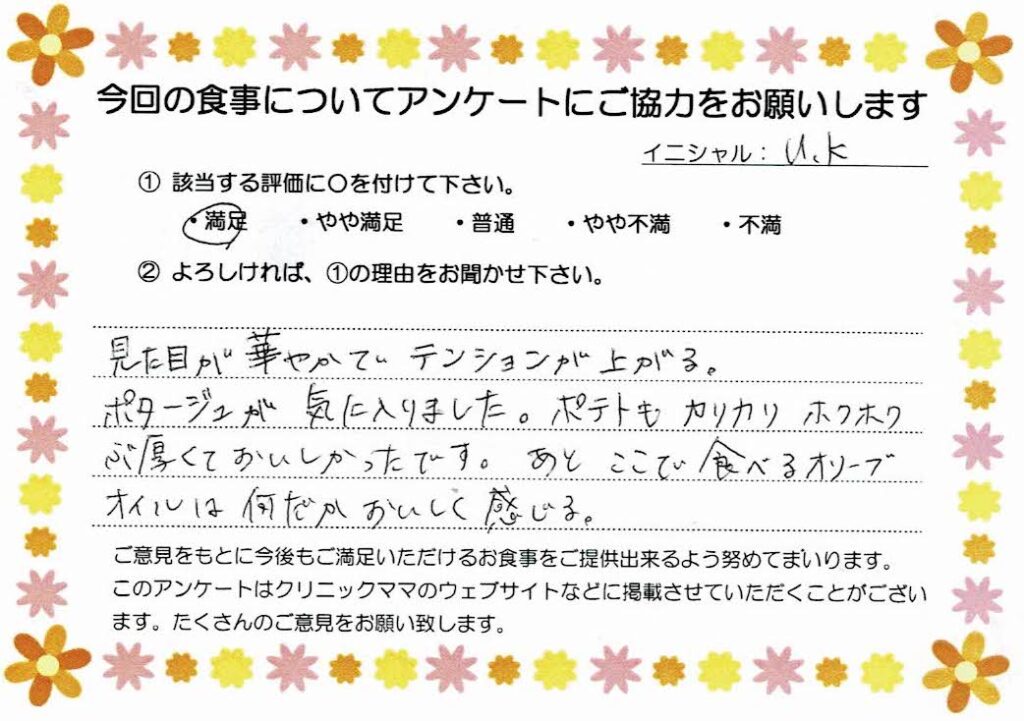 今回の食事についてアンケートにご協力をお願いします
イニシャル： U.K
① 該当する評価に〇を付けて下さい。
・満足 ・やや満足 ・普通 ・やや不満 ・不満
② よろしければ、①の理由をお聞かせ下さい。
見た目が華やかで テンションが上がる。
ポタージュが 気に入りました。ポテトも カリカリ ホクホク
ぶ厚くて おいしかったです。 あと ここで 食べるオリーブ
オイルは 何だか おいしく 感じる。
ご意見をもとに今後もご満足いただけるお食事をご提供出来るよう努めてまいります。
このアンケートはクリニックママのウェブサイトなどに掲載させていただくことがござい
ます。たくさんのご意見をお願い致します。